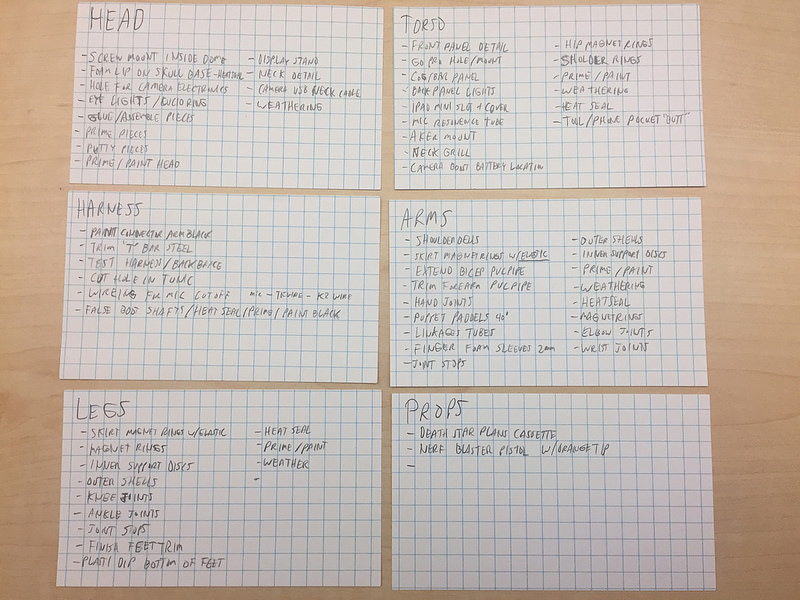 HEAD
- SCREW MOUNT INSIDE DOME
- FOAM LIP ON SKULL BASE - HEATSEAL
- HOLE FOR CAMERA ELECTRONICS
- EYE LIGHTS /
- GLUE/ASSEMBLE PIECES
- PRIME PIECES
- PUTTY PIECES
- PRIME/PAINT HEAD
- DISPLAY STAND
- NECK DETAIL
- CAMERA USB NECK CABLE
- WEATHERING
TORSO
- FRONT PANEL DETAIL
- GO PRO HOLE/MOUNT
- COG/BAR PANEL
- BACK PANEL LIGHTS
- IPAD MINI SLOT + COVER
- MIC RESONENCE TUBE
- AKER MOUNT
- NECK GRILL
- CAMERA BATTERY LOCATION
- HIP MAGNET RINGS
- SHOLDER RINGS
- PRIME/PAINT
- WEATHERING
- HEAT SEAL
- TOOL/PHONE POCKET "BUTT"
HARNESS
- PAINT CONDUCTOR ARM BLACK
- TRIM "T" BAR STEEL
- TEST HARNESS/BACKBRACE
- CUT HOLE IN TUNIC
- WIREING FOR MIC CUTOFF MIC - TKWIRE - K2 WIRE
- FALSE BOD SHAFTS/HEAT SEAL/PRIME/PAINT BLACK
ARMS
- SHOULDER DELLS
- SKIRT MAGNET RINGS W/ELASTIC
- EXTEND BICEP PVC PIPE
- TRIM FOREARM PVC PIPE
- HAND JOINTS
- PUPPET PADDELS 40°
- LINKAGES TUBES
- FINGER FOAM SLEEVES 2mm
- JOINT STOPS
- OUTER SHELLS
- INNER SUPPORT DISCS
- PRIME/PAINT
- WEATHERING
- HEATSEAL
- MAGNET RINGS
- ELBOW JOINTS
- WRIST JOINTS
LEGS
- SKIRT MAGNET RINGS W/ELASTIC
- MAGNET RINGS
- INNER SUPPORT DISCS
- OUTER SHELLS
- KNEE JOINTS
- ANKLE JOINTS
- JOINT STOPS
- FINISH FEET TRIM
- PLASTI DIP BOTTOM OF FEET
- HEAT SEAL
- PRIME/PAINT
- WEATHER
-
PROPS
- DEATH STAR PLANS CASSETTE
- NERF BLASTER PISTOL W/ORANGE TIP
-